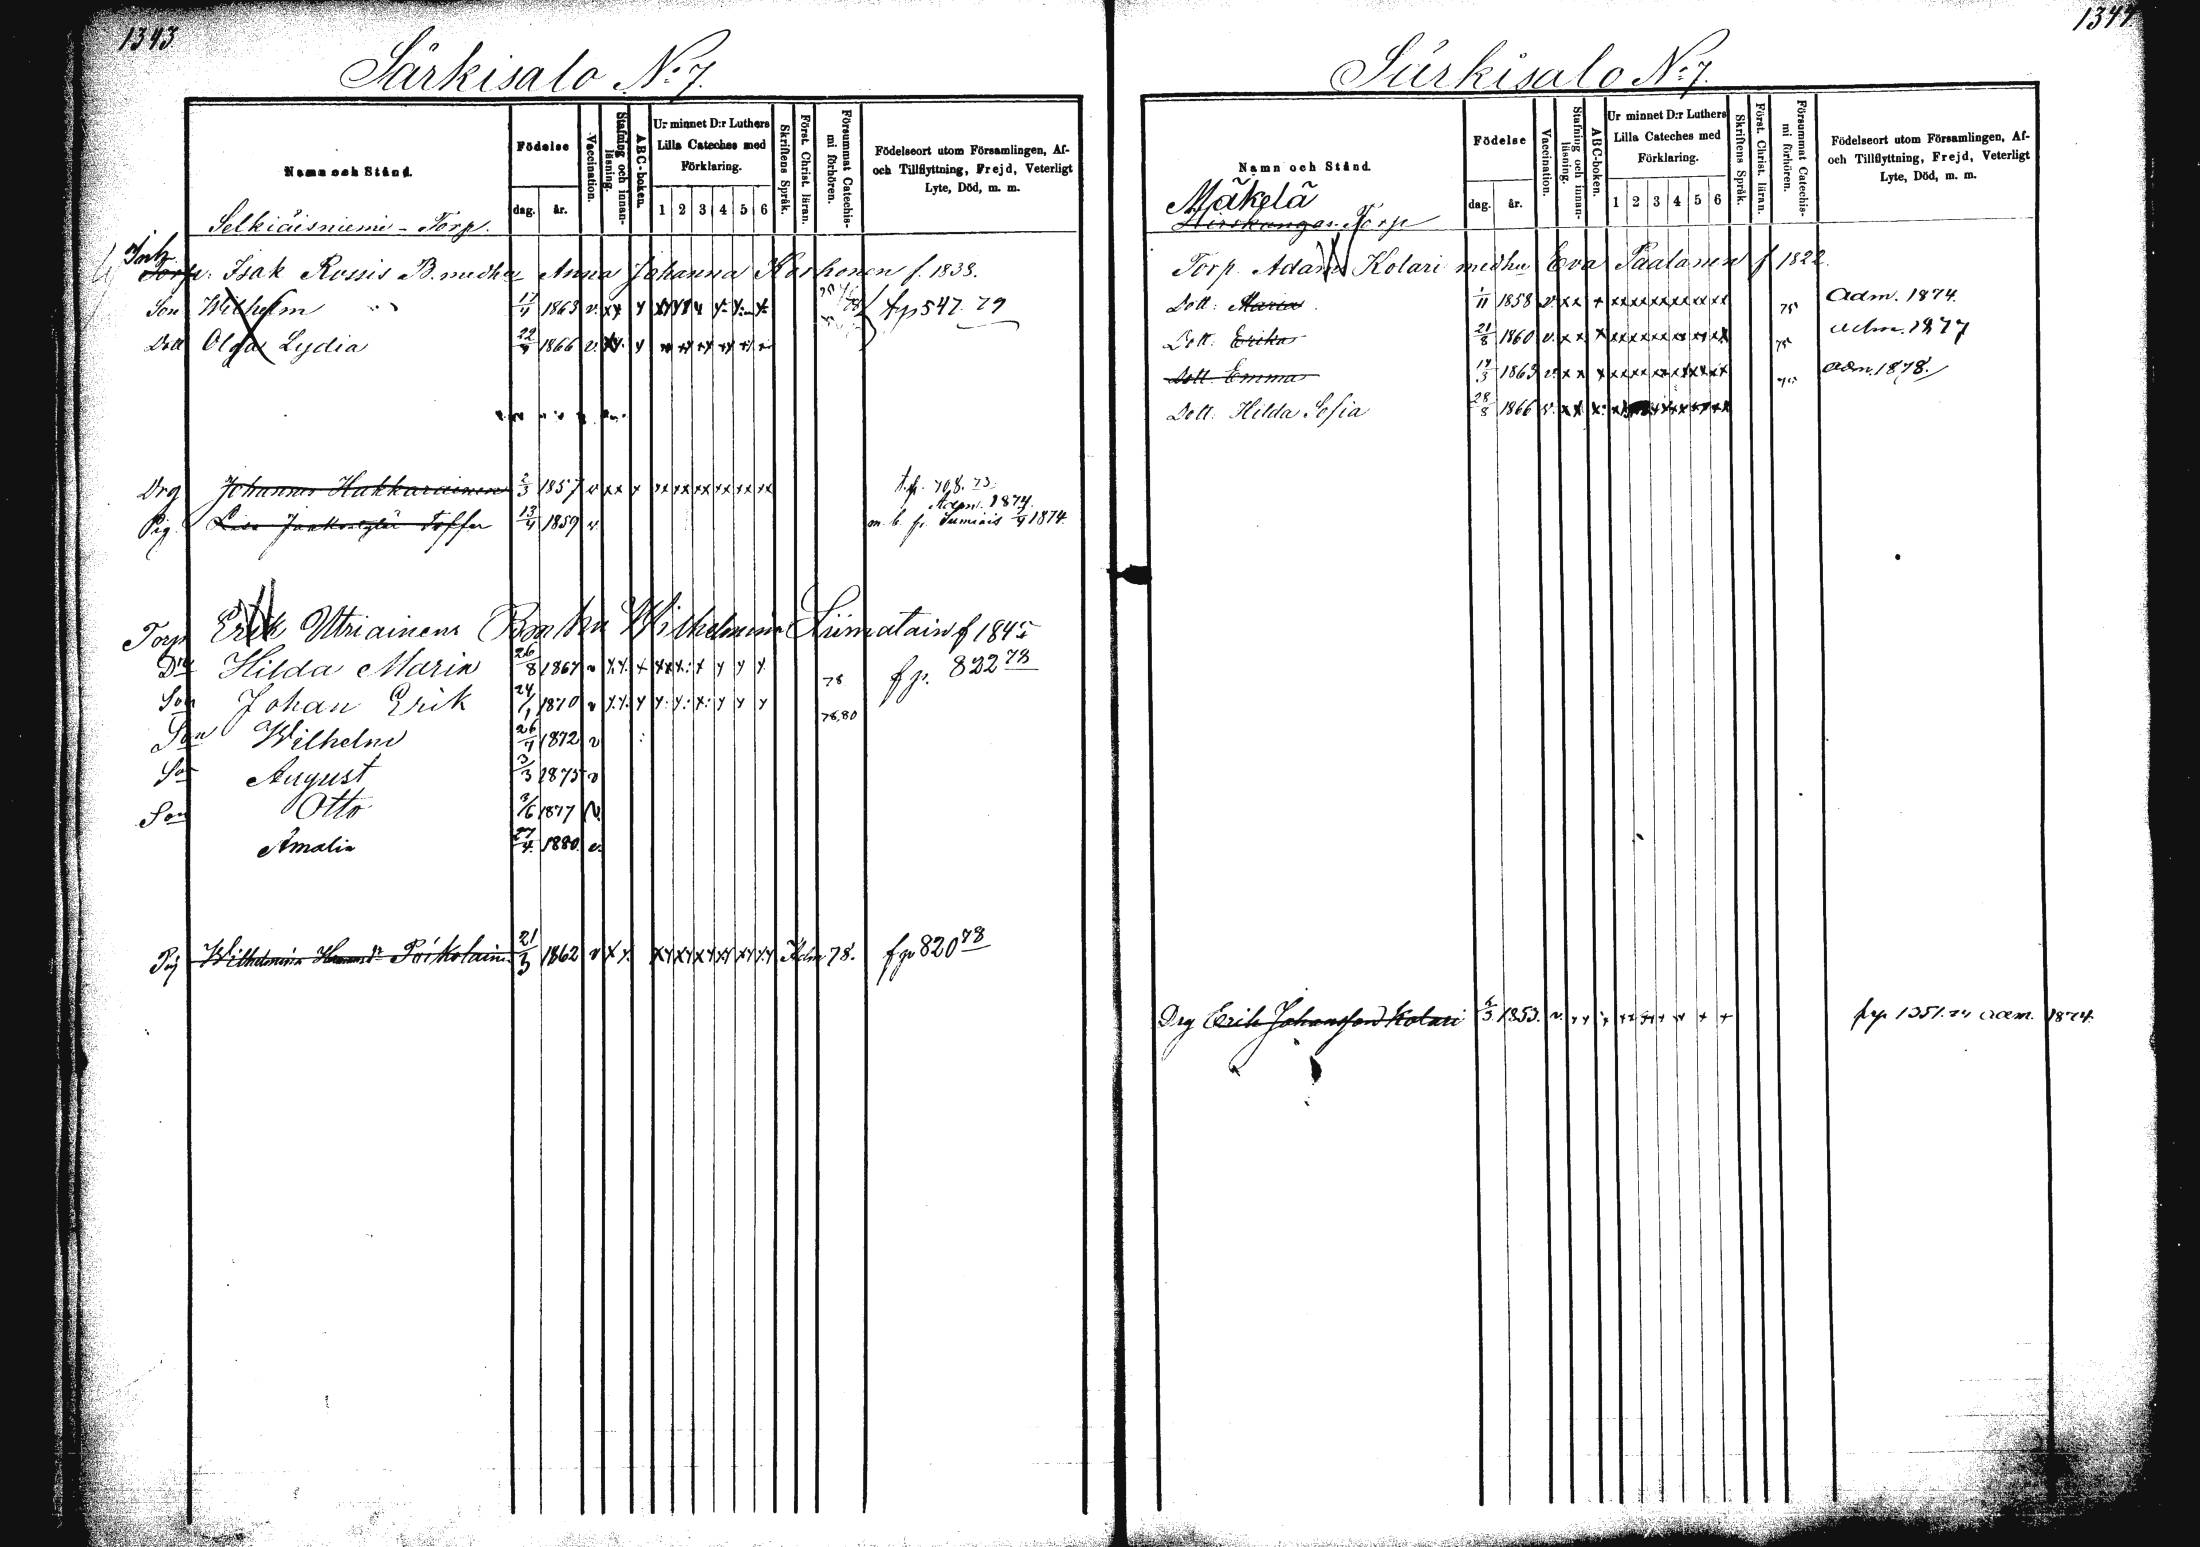 1343
Särkisalo No 7.
Namn och Stånd.
Födelse
dag. år.
Vaccination.
Stafning och innanläsning.
ABC-boken.
Ur minnet D:r Luthers Lilla Cateches med Förklaring.
1 2 3 4 5 6
Skriftens Språk.
Först. Christ. läran.
Försummat Catechismi förhören.
Födelseort utom Församlingen, Af- och Tillflyttning, Frejd, Veterligt Lyte, Död, m. m.
Selkiäisniemi - Torp.
Torp. Isak Rossis B. medhu Anna Johanna Korhonen f. 1838.
Son Wilhelm 1863 v. fp 547. 79
Dott Olga Lydia 22 1866 v.
Drg Johannes Hakkarainen 2/3 1857 v 708. 73
Pig. Lisa 13/4 1859 v Adm. 1874. m. b. fr. Sumiais 1874.
Torp Erik Utriainens Wilhelmina Liimatain f 1845
Dr Hilda Maria 26/8 1867 v 78 fp. 822 78
Son Johan Erik 24/1 1870 v 78,80
Son Wilhelm 26/4 1872 v
Son August 3/3 1875 v
Son Otto 1877 v
Amalia 27/4. 1880. v.
Pig Wilhelmina Poikolainen 21/3 1862 v Adm 78. fp 820 78
1344.
Särkisalo No 7.
Namn och Stånd.
Födelse
dag. år.
Vaccination.
Stafning och innanläsning.
ABC-boken.
Ur minnet D:r Luthers Lilla Cateches med Förklaring.
1 2 3 4 5 6
Skriftens Språk.
Först. Christ. läran.
Försummat Catechismi förhören.
Födelseort utom Församlingen, Af- och Tillflyttning, Frejd, Veterligt Lyte, Död, m. m.
Mäkelä
Hirskangas Torp
Torp. Adam Kolari medhu Eva Paalanen f 1822.
Dott: Maria 1/11 1858 v 75 Adm. 1874.
Dott: Erika 21/8 1860 v. 75 Adm. 1877
Dott Emma 1863 v. 75 adm. 1878.
Dott. Hilda Sofia 28/8 1866 v.
Drg Erik Johansson Kolari 1853. v. fp. 1351. adm. 1874.